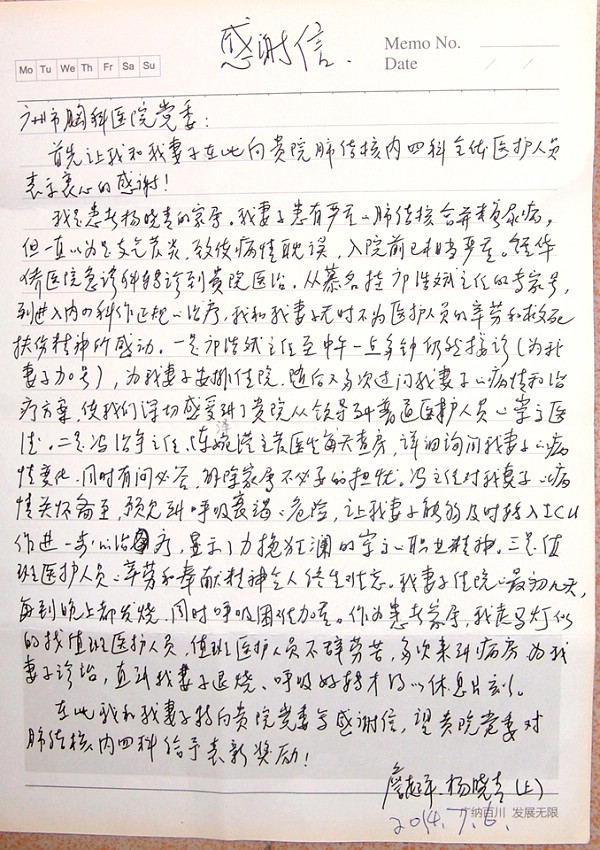 感谢信.
Memo No.
Mo Tu We Th Fr Sa Su
Date / /
广州市胸科医院党委:
首先让我和我妻子在此向贵院肺结核内四科全体医护人员
表示衷心的感谢!
我是患者杨晓青的家属。我妻子患有严重的肺结核合并糖尿病,
但一直以为是支气管炎,致使病情耽误,入院前已相当严重。经华
侨医院急诊科转诊到贵院医治。从慕名挂邝浩斌主任的专家号,
到进入内四科作正规的治疗,我和我妻子无时不为医护人员的辛劳和救死
扶伤精神所感动。一是邝浩斌主任至中午一点多钟仍然接诊(为我
妻子加号),为我妻子安排住院。随后又多次过问我妻子的病情和治
疗方案,使我们深切感受到了贵院从领导到普通医护人员的崇高医
德。二是冯治宇主任、陈婉莹主管医生每天查房,详细询问我妻子的病
情变化,同时有问必答,解除家属不必要的担忧。冯主任对我妻子的病
情关怀备至,预见到呼吸衰竭的危险,让我妻子能够及时转入ICU
作进一步的治疗,显示了力挽狂澜的崇高的职业精神。三是值
班医护人员的辛劳和奉献精神令人终生难忘。我妻子住院的最初几天,
每到晚上都发烧,同时呼吸困难加重。作为患者家属,我走马灯似
的找值班医护人员,值班医护人员不辞劳苦,多次来到病房为我
妻子诊治,直到我妻子退烧、呼吸好转才得以休息片刻。
在此我和我妻子特向贵院党委写感谢信,望贵院党委对
肺结核内四科给予表彰奖励!
杨晓青(上)
2014.7.6.
广纳百川 发展无限